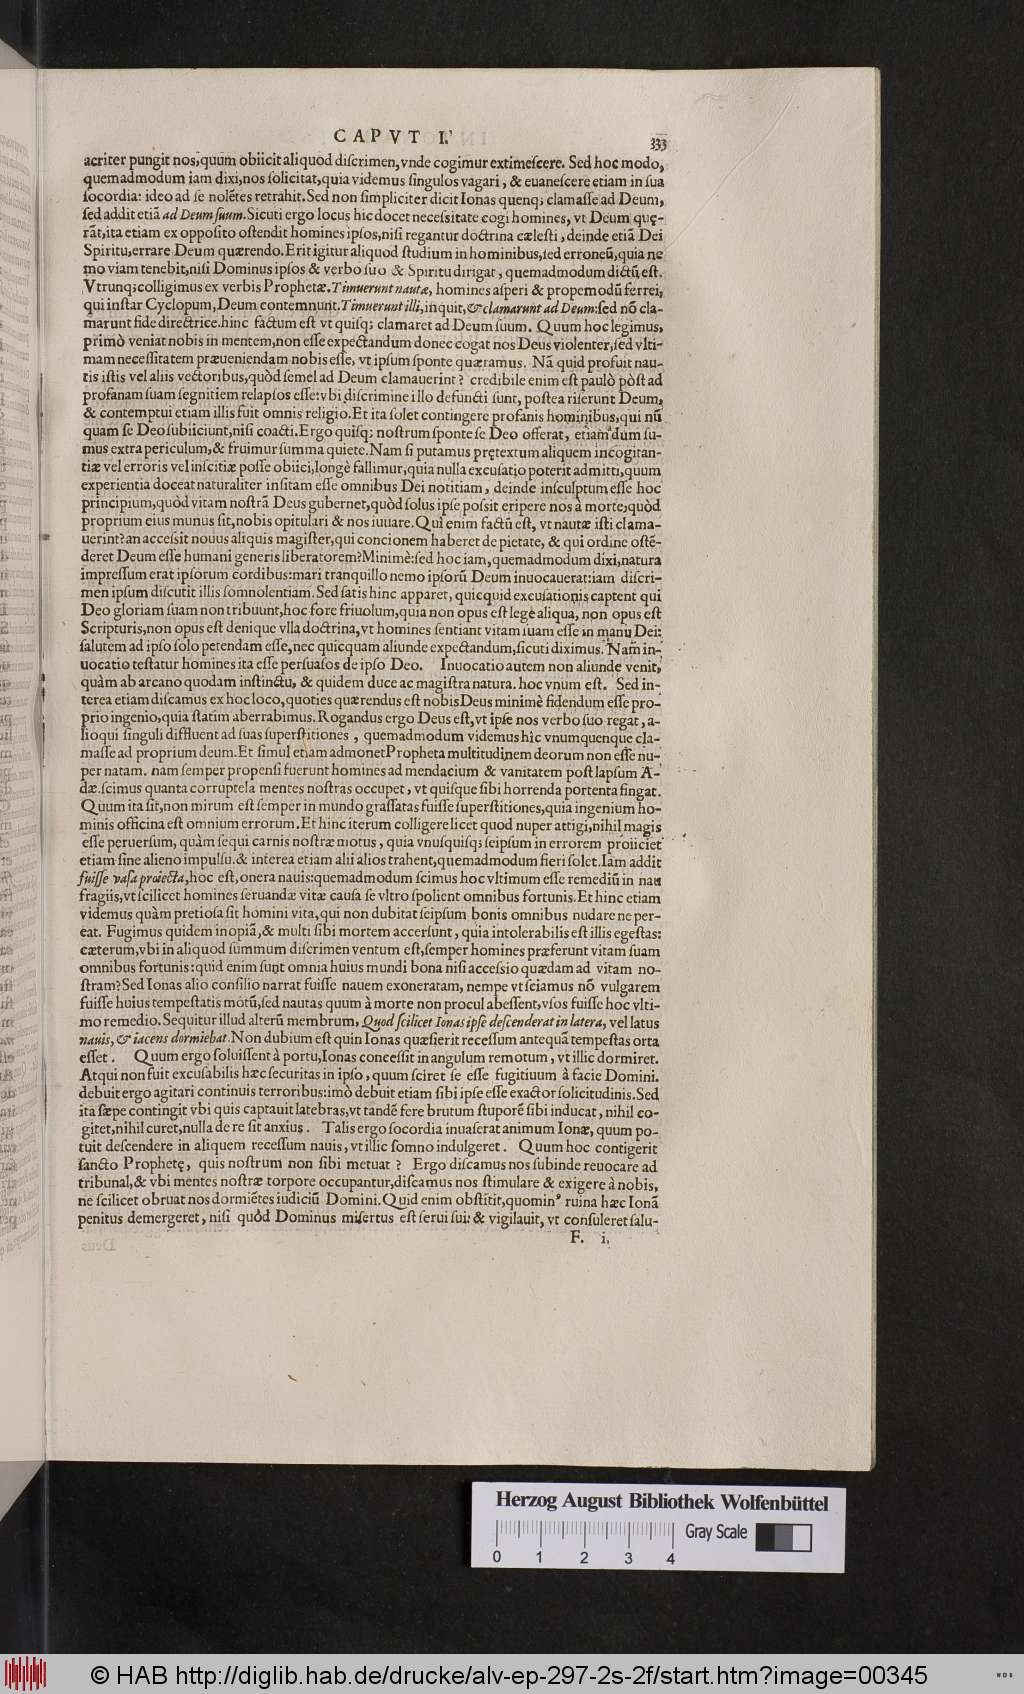 CAPVT I. 333
acriter pungit nos, quum obiicit aliquod diſcrimen, vnde cogimur extimeſcere. Sed hoc modo,
quemadmodum iam dixi, nos ſolicitat, quia videmus ſingulos vagari, & euaneſcere etiam in ſua
ſocordia: ideo ad ſe nolētes retrahit. Sed non ſimpliciter dicit Ionas quenq; clamaſſe ad Deum,
ſed addit etiā ad Deum ſuum. Sicuti ergo locus hic docet neceſsitate cogi homines, vt Deum quę-
rāt, ita etiam ex oppoſito oſtendit homines ipſos, niſi regantur doctrina cæleſti, deinde etiā Dei
Spiritu, errare Deum quærendo. Erit igitur aliquod ſtudium in hominibus, ſed erroneū, quia ne
mo viam tenebit, niſi Dominus ipſos & verbo ſuo & Spiritu dirigat, quemadmodum dictū eſt.
Vtrunq; colligimus ex verbis Prophetæ. Timuerunt nautæ, homines aſperi & propemodū ferrei,
qui inſtar Cyclopum, Deum contemnunt. Timuerunt illi, inquit, & clamarunt ad Deum: ſed nō cla-
marunt fide directrice. hinc factum eſt vt quiſq; clamaret ad Deum ſuum. Quum hoc legimus,
primò veniat nobis in mentem, non eſſe expectandum donec cogat nos Deus violenter, ſed vlti-
mam neceſſitatem præueniendam nobis eſſe, vt ipſum ſponte quæramus. Nā quid profuit nau-
tis iſtis vel aliis vectoribus, quòd ſemel ad Deum clamauerint? credibile enim eſt paulò pòſt ad
profanam ſuam ſegnitiem relapſos eſſe: vbi diſcrimine illo defuncti ſunt, poſtea riſerunt Deum,
& contemptui etiam illis fuit omnis religio. Et ita ſolet contingere profanis hominibus, qui nū
quam ſe Deo ſubiiciunt, niſi coacti. Ergo quiſq; noſtrum ſponte ſe Deo offerat, etiam dum ſu-
mus extra periculum, & fruimur ſumma quiete. Nam ſi putamus prętextum aliquem incogitan-
tiæ vel erroris vel inſcitiæ poſſe obiici, longè fallimur, quia nulla excuſatio poterit admitti, quum
experientia doceat naturaliter inſitam eſſe omnibus Dei notitiam, deinde inſculptum eſſe hoc
principium, quòd vitam noſtrā Deus gubernet, quòd ſolus ipſe poſsit eripere nos à morte, quòd
proprium eius munus ſit, nobis opitulari & nos iuuare. Qui enim factū eſt, vt nautæ iſti clama-
uerint? an acceſsit nouus aliquis magiſter, qui concionem haberet de pietate, & qui ordine oſtē-
deret Deum eſſe humani generis liberatorem? Minimè: ſed hoc iam, quemadmodum dixi, natura
impreſſum erat ipſorum cordibus: mari tranquillo nemo ipſorū Deum inuocauerat: iam diſcri-
men ipſum diſcutit illis ſomnolentiam. Sed ſatis hinc apparet, quicquid excuſationis captent qui
Deo gloriam ſuam non tribuunt, hoc fore friuolum, quia non opus eſt lege aliqua, non opus eſt
Scripturis, non opus eſt denique vlla doctrina, vt homines ſentiant vitam ſuam eſſe in manu Dei:
ſalutem ad ipſo ſolo petendam eſſe, nec quicquam aliunde expectandum, ſicuti diximus. Nam in-
uocatio teſtatur homines ita eſſe perſuaſos de ipſo Deo. Inuocatio autem non aliunde venit,
quàm ab arcano quodam inſtinctu, & quidem duce ac magiſtra natura. hoc vnum eſt. Sed in-
terea etiam diſcamus ex hoc loco, quoties quærendus eſt nobis Deus minimè fidendum eſſe pro-
prio ingenio, quia ſtatim aberrabimus. Rogandus ergo Deus eſt, vt ipſe nos verbo ſuo regat, a-
lioqui ſinguli diffluent ad ſuas ſuperſtitiones, quemadmodum videmus hîc vnumquenque cla-
maſſe ad proprium deum. Et ſimul etiam admonet Propheta multitudinem deorum non eſſe nu-
per natam. nam ſemper propenſi fuerunt homines ad mendacium & vanitatem poſt lapſum A-
dæ. ſcimus quanta corruptela mentes noſtras occupet, vt quiſque ſibi horrenda portenta fingat.
Quum ita ſit, non mirum eſt ſemper in mundo graſſatas fuiſſe ſuperſtitiones, quia ingenium ho-
minis officina eſt omnium errorum. Et hinc iterum colligere licet quod nuper attigi, nihil magis
eſſe peruerſum, quàm ſequi carnis noſtræ motus, quia vnuſquiſq; ſeipſum in errorem proiiciet
etiam ſine alieno impulſu. & interea etiam alii alios trahent, quemadmodum fieri ſolet. Iam addit
fuiſſe vaſa proiecta, hoc eſt, onera nauis: quemadmodum ſcimus hoc vltimum eſſe remediū in nau
fragiis, vt ſcilicet homines ſeruandæ vitæ cauſa ſe vltro ſpolient omnibus fortunis. Et hinc etiam
videmus quàm pretioſa ſit homini vita, qui non dubitat ſeipſum bonis omnibus nudare ne per-
eat. Fugimus quidem inopiā, & multi ſibi mortem accerſunt, quia intolerabilis eſt illis egeſtas:
cæterum, vbi in aliquod ſummum diſcrimen ventum eſt, ſemper homines præferunt vitam ſuam
omnibus fortunis: quid enim ſunt omnia huius mundi bona niſi acceſsio quædam ad vitam no-
ſtram? Sed Ionas alio conſilio narrat fuiſſe nauem exoneratam, nempe vt ſciamus nō vulgarem
fuiſſe huius tempeſtatis motū, ſed nautas quum à morte non procul abeſſent, vſos fuiſſe hoc vlti-
mo remedio. Sequitur illud alterū membrum, Quod ſcilicet Ionas ipſe deſcenderat in latera, vel latus
nauis, & iacens dormiebat. Non dubium eſt quin Ionas quæſierit receſſum antequā tempeſtas orta
eſſet. Quum ergo ſoluiſſent à portu, Ionas conceſſit in angulum remotum, vt illic dormiret.
Atqui non fuit excuſabilis hæc ſecuritas in ipſo, quum ſciret ſe eſſe fugitiuum à facie Domini.
debuit ergo agitari continuis terroribus: imò debuit etiam ſibi ipſe eſſe exactor ſolicitudinis. Sed
ita ſæpe contingit vbi quis captauit latebras, vt tandē fere brutum ſtuporē ſibi inducat, nihil co-
gitet, nihil curet, nulla de re ſit anxius. Talis ergo ſocordia inuaſerat animum Ionæ, quum po-
tuit deſcendere in aliquem receſſum nauis, vt illic ſomno indulgeret. Quum hoc contigerit
ſancto Prophetę, quis noſtrum non ſibi metuat? Ergo diſcamus nos ſubinde reuocare ad
tribunal, & vbi mentes noſtræ torpore occupantur, diſcamus nos ſtimulare & exigere à nobis,
ne ſcilicet obruat nos dormiētes iudiciū Domini. Quid enim obſtitit, quomin⁹ ruina hæc Ionā
penitus demergeret, niſi quòd Dominus miſertus eſt ſerui ſui: & vigilauit, vt conſuleret ſalu-
F. i.
Herzog August Bibliothek Wolfenbüttel
Gray Scale
0 1 2 3 4
© HAB http://diglib.hab.de/drucke/alv-ep-297-2s-2f/start.htm?image=00345